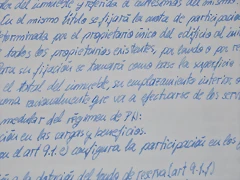 dor del inmueble y referida a centésimas del mismo.
En el mismo título se fijará la cuota de participació
eterminada por el propietario único del edificio al inic
todos los propietarios existentes, por laudo o por re
Para su fijación se tomará como base la superficie
el total del inmueble, su emplazamiento interior o
uma racionalmente que va a efectuarse de los servi
modular del régimen de PH:
ción en las cargas y beneficios.
ón el art 9.1.e) configura la participación en los g
a la dotación del fondo de reserva (art 9.1.f)